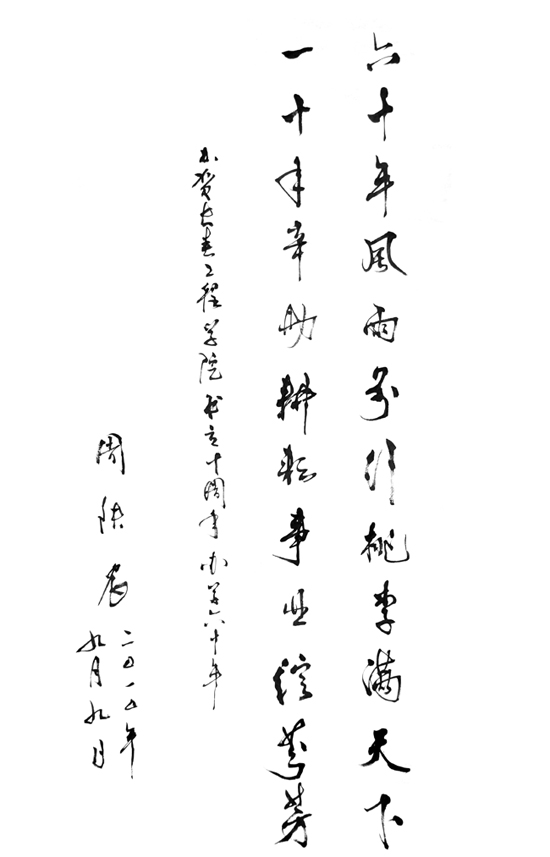 六十年风雨前行桃李满天下
一十年辛勤耕耘事业绽芬芳
贺长春工程学院成立十周年办学六十年
周
二〇一〇年
九月九日